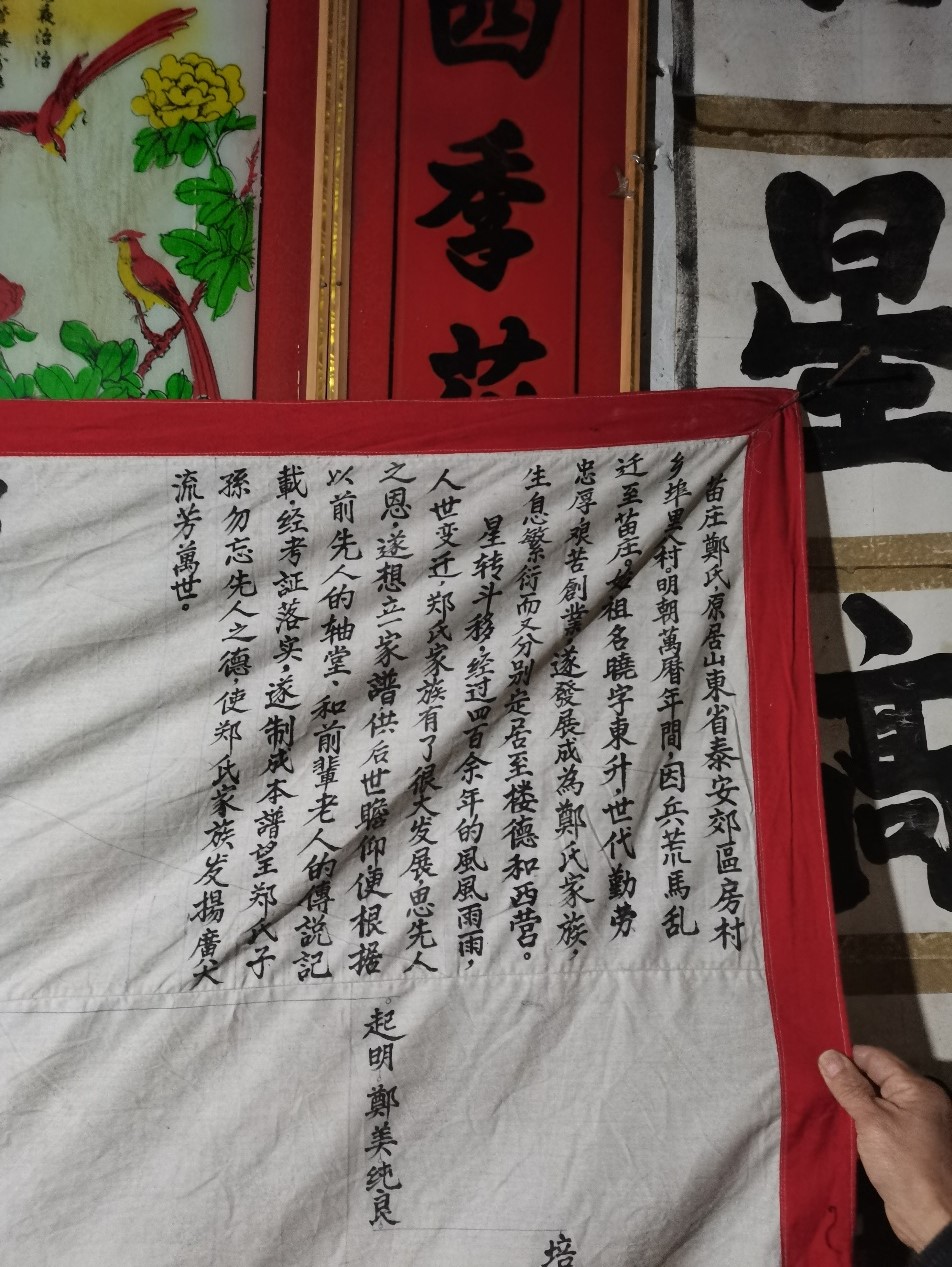 苗庄鄭氏,原居山東省泰安郊區房村
乡埠黑村.明朝萬曆年間,因兵荒馬乱
迁至苗庄。始祖名曉字東升,世代勤劳
忠厚艰苦創業,遂發展成為鄭氏家族,
生息繁衍而又分别定居至楼德和西营。
星转斗移,经过四百余年的風風雨雨,
人世变迁,郑氏家族有了很大发展,思先人
之恩,遂想立一家譜供后世瞻仰,便根据
以前先人的轴堂、和前輩老人的傳説記
載,经考証落实,遂制成本譜望郑氏子
孫勿忘先人之德,使郑氏家族发揚廣大
流芳萬世。
起明 鄭美纯良
培
四季花
星高